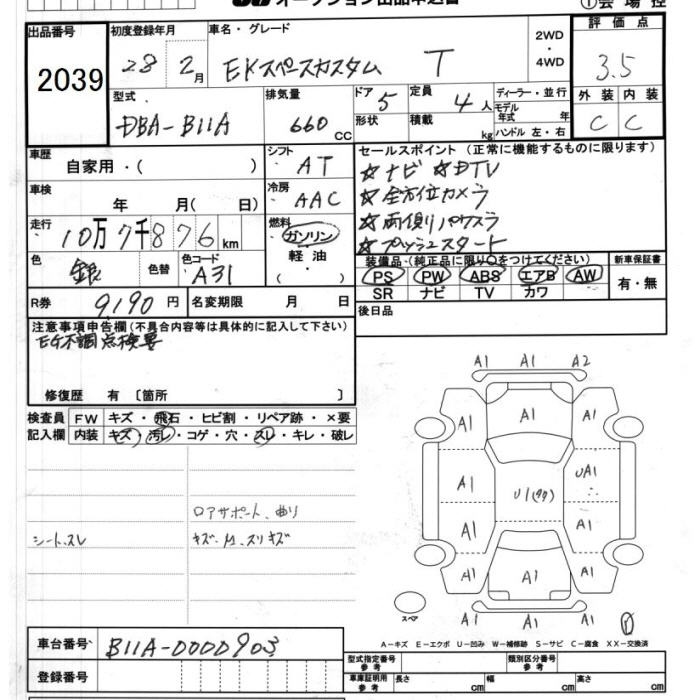 オークション出品申込書
①会場控
出品番号 2039
初度登録年月 28 2月
車名・グレード EKスペースカスタム T
2WD・4WD
評価点 3.5
型式 DBA-B11A
排気量 660 CC
ドア 5
形状
定員 4人
積載 kg
ディーラー・並行
モデル年式 年
ハンドル 左・右
外装 C 内装 C
車歴 自家用・( )
シフト AT
セールスポイント (正常に機能するものに限ります)
☆ナビ ☆DTV
☆全方位カメラ
☆両側パワスラ
☆プッシュスタート
車検 年 月( 日)
冷房 AAC
走行 10万7千876km
燃料 ガソリン・軽油・( )
色 銀 色替
色コード A31
装備品・(純正品に限り○をつけてください)
PS PW ABS エアB AW
SR ナビ TV カワ
新車保証書 有・無
R券 9,190円
名変期限 月 日
後日品
注意事項申告欄(不具合内容等は具体的に記入して下さい)
EG不調点検要
修復歴 有 〔箇所 〕
検査員記入欄
FW キズ・飛石・ヒビ割・リペア跡・×要
内装 キズ・汚レ・コゲ・穴・スレ・キレ・破レ
ロアサポート、曲り
シート、スレ
キズ、M、スリキズ
A1 A1 A2
A1 A1 A1
A1 U1(77) UA1
A1 A1
A1 A1 A1
スペア
A-キズ E-エクボ U-凹み W-補修跡 S-サビ C-腐食 XX-交換済
車台番号 B11A-0000903
登録番号
型式指定番号 参考
類別区分番号 参考
車庫証明用 参考 長さ cm 幅 cm 高さ cm